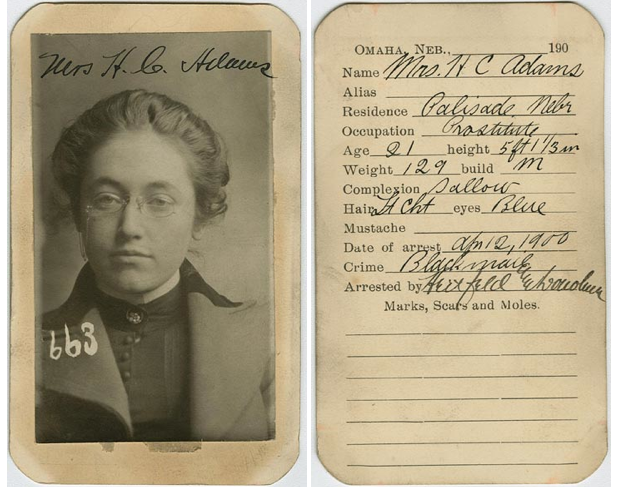 Mrs H. C. Adams
663
OMAHA, NEB., 190
Name Mrs. H C Adams
Alias
Residence Palisade Nebr
Occupation Prostitute
Age 21 height 5ft 1 1/3 in
Weight 129 build M
Complexion Sallow
Hair Lt Cht eyes Blue
Mustache
Date of arrest Apr 12, 1900
Crime Blackmail
Arrested by
Marks, Scars and Moles.